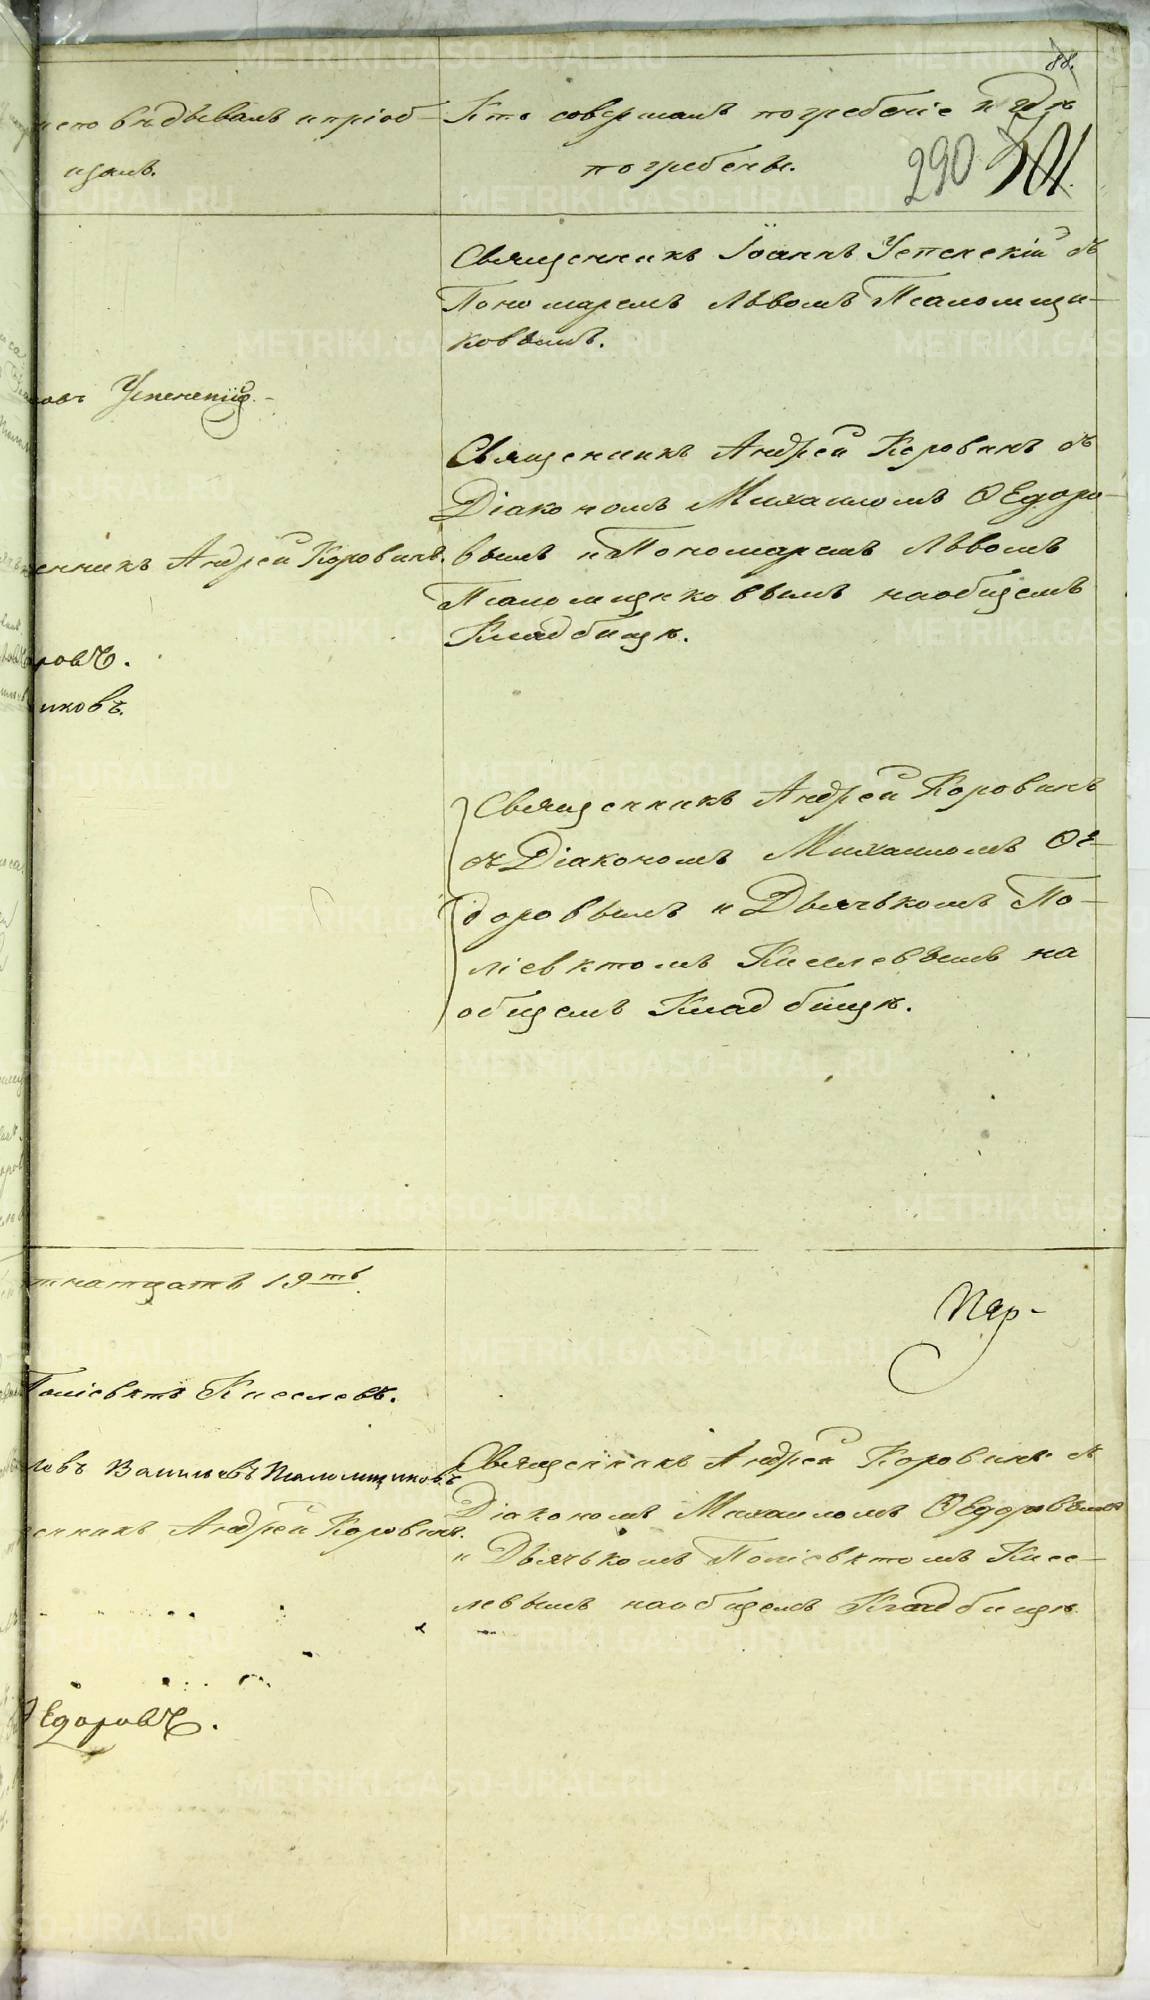 88.
исповѣдывалъ и пріоб-
щалъ.
Кто совершалъ погребеніе и гдѣ
погребены.
290
301
Священникъ Іоаннъ Успенскій съ
Пономаремъ Львомъ Псаломщи-
ковымъ.
Успенскій.
Священникъ Андрей Коровинъ съ
Діакономъ Михаиломъ Ѳедоро-
вымъ и Пономаремъ Львомъ
Псаломщиковымъ на общемъ
Кладбищѣ.
енникъ Андрей Коровинъ.
оровъ.
иковъ.
Священникъ Андрей Коровинъ
съ Діакономъ Михаиломъ Ѳе-
доровымъ и Дьячькомъ По-
ліевктомъ Киселевымъ на
общемъ Кладбищѣ.
тнатцать 19ть.
Пар-
Поліевктъ Киселевъ.
Левъ Васильевъ Псаломщиковъ
енникъ Андрей Коровинъ.
Священникъ Андрей Коровинъ съ
Діакономъ Михаиломъ Ѳедоровымъ
и Дьячькомъ Поліевктомъ Кисе-
левымъ на общемъ Кладбищѣ
Ѳедоровъ.
METRIKI.GASO-URAL.RU